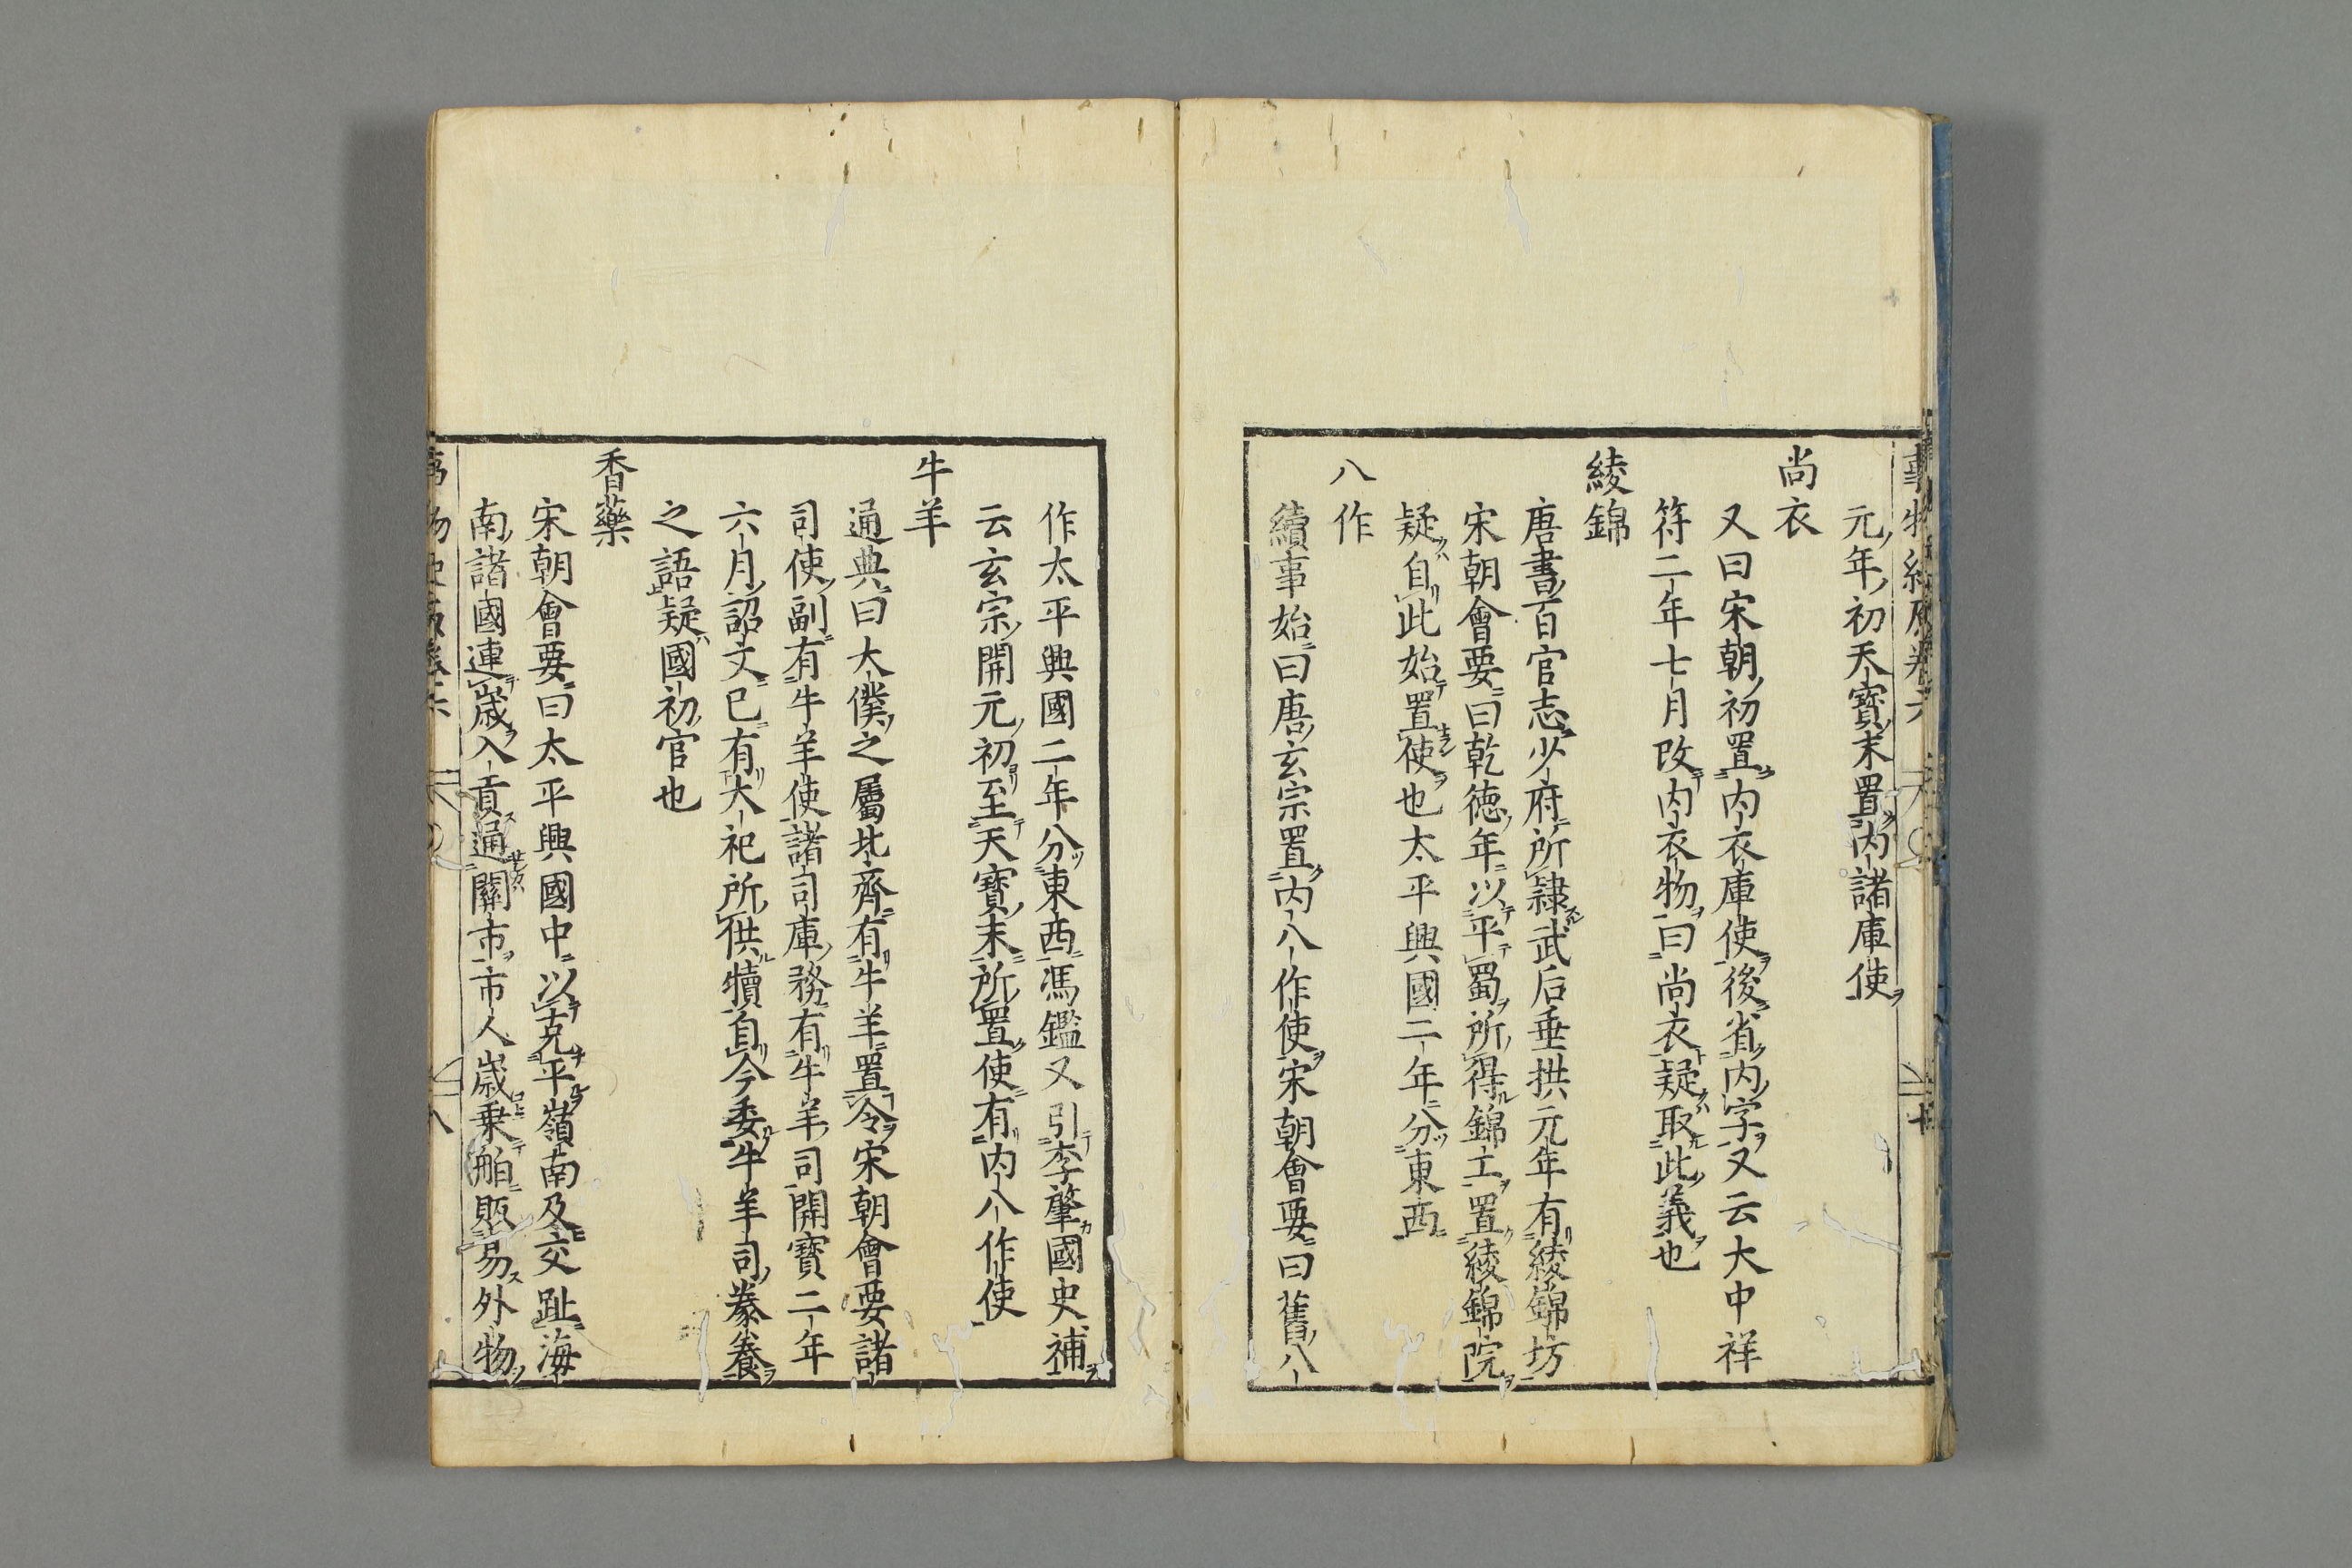 元年初天寶末置内諸庫使
尚衣
又曰宋朝初置内衣庫使後省内字又云大中祥
符二年七月改内衣物曰尚衣疑取此義也
綾錦
唐書百官志少府所隷武后垂拱元年有綾錦坊
宋朝會要曰乾徳年以平蜀所得錦工置綾錦院
疑自此始置使也太平興國二年分東西
八作
續事始曰唐玄宗置内八作使宋朝會要曰舊八
作太平興國二年分東西馮鑑又引李肇國史補
云玄宗開元初至天寶末所置使有内八作使
牛羊
通典曰太僕之屬北齊有牛羊置令宋朝會要諸
司使副有牛羊使諸司庫務有牛羊司開寶二年
六月詔文已有大祀所供犢自今委牛羊司豢養
之語疑國初官也
香藥
宋朝會要曰太平興國中以克平嶺南及交趾海
南諸國連歲入貢通關市市人歲乗舶販易外物